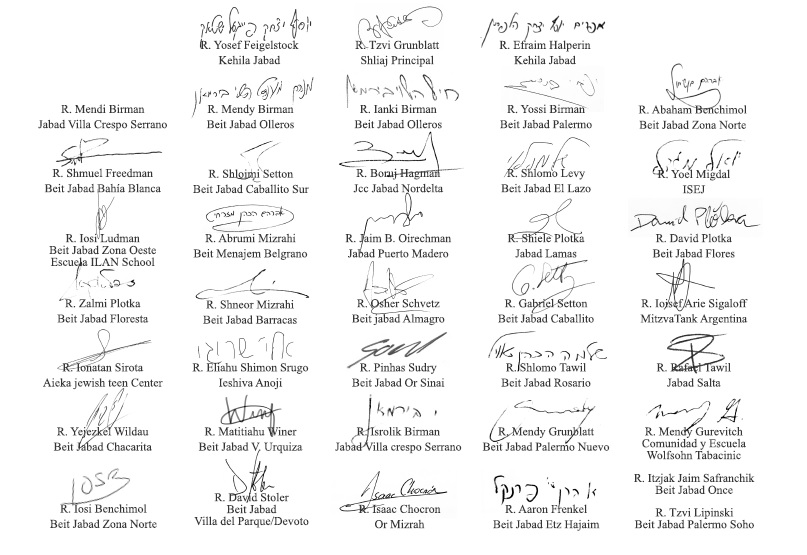 R. Yosef Feigelstock
Kehila Jabad
R. Tzvi Grunblatt
Shliaj Principal
R. Efraim Halperin
Kehila Jabad
R. Mendi Birman
Jabad Villa Crespo Serrano
R. Mendy Birman
Beit Jabad Olleros
R. Ianki Birman
Beit Jabad Olleros
R. Yossi Birman
Beit Jabad Palermo
R. Abaham Benchimol
Beit Jabad Zona Norte
R. Shmuel Freedman
Beit Jabad Bahía Blanca
R. Shloimi Setton
Beit Jabad Caballito Sur
R. Boruj Hagman
Jcc Jabad Nordelta
R. Shlomo Levy
Beit Jabad El Lazo
R. Yoel Migdal
ISEJ
R. Iosi Ludman
Beit Jabad Zona Oeste
Escuela ILAN School
אברהם הכהן מזרחי
R. Abrumi Mizrahi
Beit Menajem Belgrano
R. Jaim B. Oirechman
Jabad Puerto Madero
R. Shiele Plotka
Jabad Lamas
David Plotka
R. David Plotka
Beit Jabad Flores
R. Zalmi Plotka
Beit Jabad Floresta
R. Shneor Mizrahi
Beit Jabad Barracas
R. Osher Schvetz
Beit jabad Almagro
G. Setton
R. Gabriel Setton
Beit Jabad Caballito
R. Iojsef Arie Sigaloff
MitzvaTank Argentina
R. Ionatan Sirota
Aieka jewish teen Center
R. Eliahu Shimon Srugo
Ieshiva Anoji
R. Pinhas Sudry
Beit Jabad Or Sinai
R.Shlomo Tawil
Beit Jabad Rosario
R. Rafael Tawil
Jabad Salta
R. Yejezkel Wildau
Beit Jabad Chacarita
R. Matitiahu Winer
Beit Jabad V. Urquiza
י בירמאן
R. Isrolik Birman
Jabad Villa crespo Serrano
R. Mendy Grunblatt
Beit Jabad Palermo Nuevo
R. Mendy Gurevitch
Comunidad y Escuela
Wolfsohn Tabacinic
R. Iosi Benchimol
Beit Jabad Zona Norte
R. David Stoler
Beit Jabad
Villa del Parque/Devoto
Isaac Chocrón
R. Isaac Chocron
Or Mizrah
R. Aaron Frenkel
Beit Jabad Etz Hajaim
R. Itzjak Jaim Safranchik
Beit Jabad Once
R. Tzvi Lipinski
Beit Jabad Palermo Soho